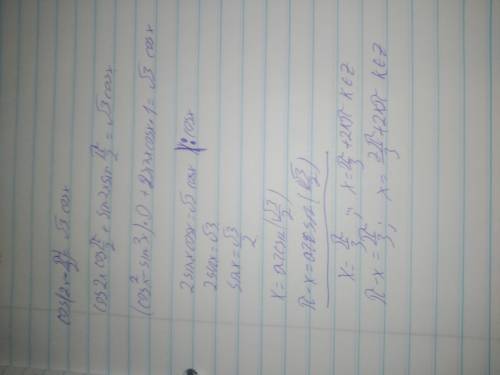 cos(2x - π/2) = √3 cosx
cos2x cos π/2 + sin2x sin π/2 = √3 cosx
(cos²x - sin²x)·0 + 2sinx cosx·1 = √3 cosx
2sinx cosx = √3 cosx |: cosx
2sinx = √3
sinx = √3/2
x = arcsin(√3/2)
π - x = arcsin(√3/2)
x = π/3 ; x = π/3 + 2kπ k∈Z
π - x = π/3 ; x = 2π/3 + 2kπ k∈Z